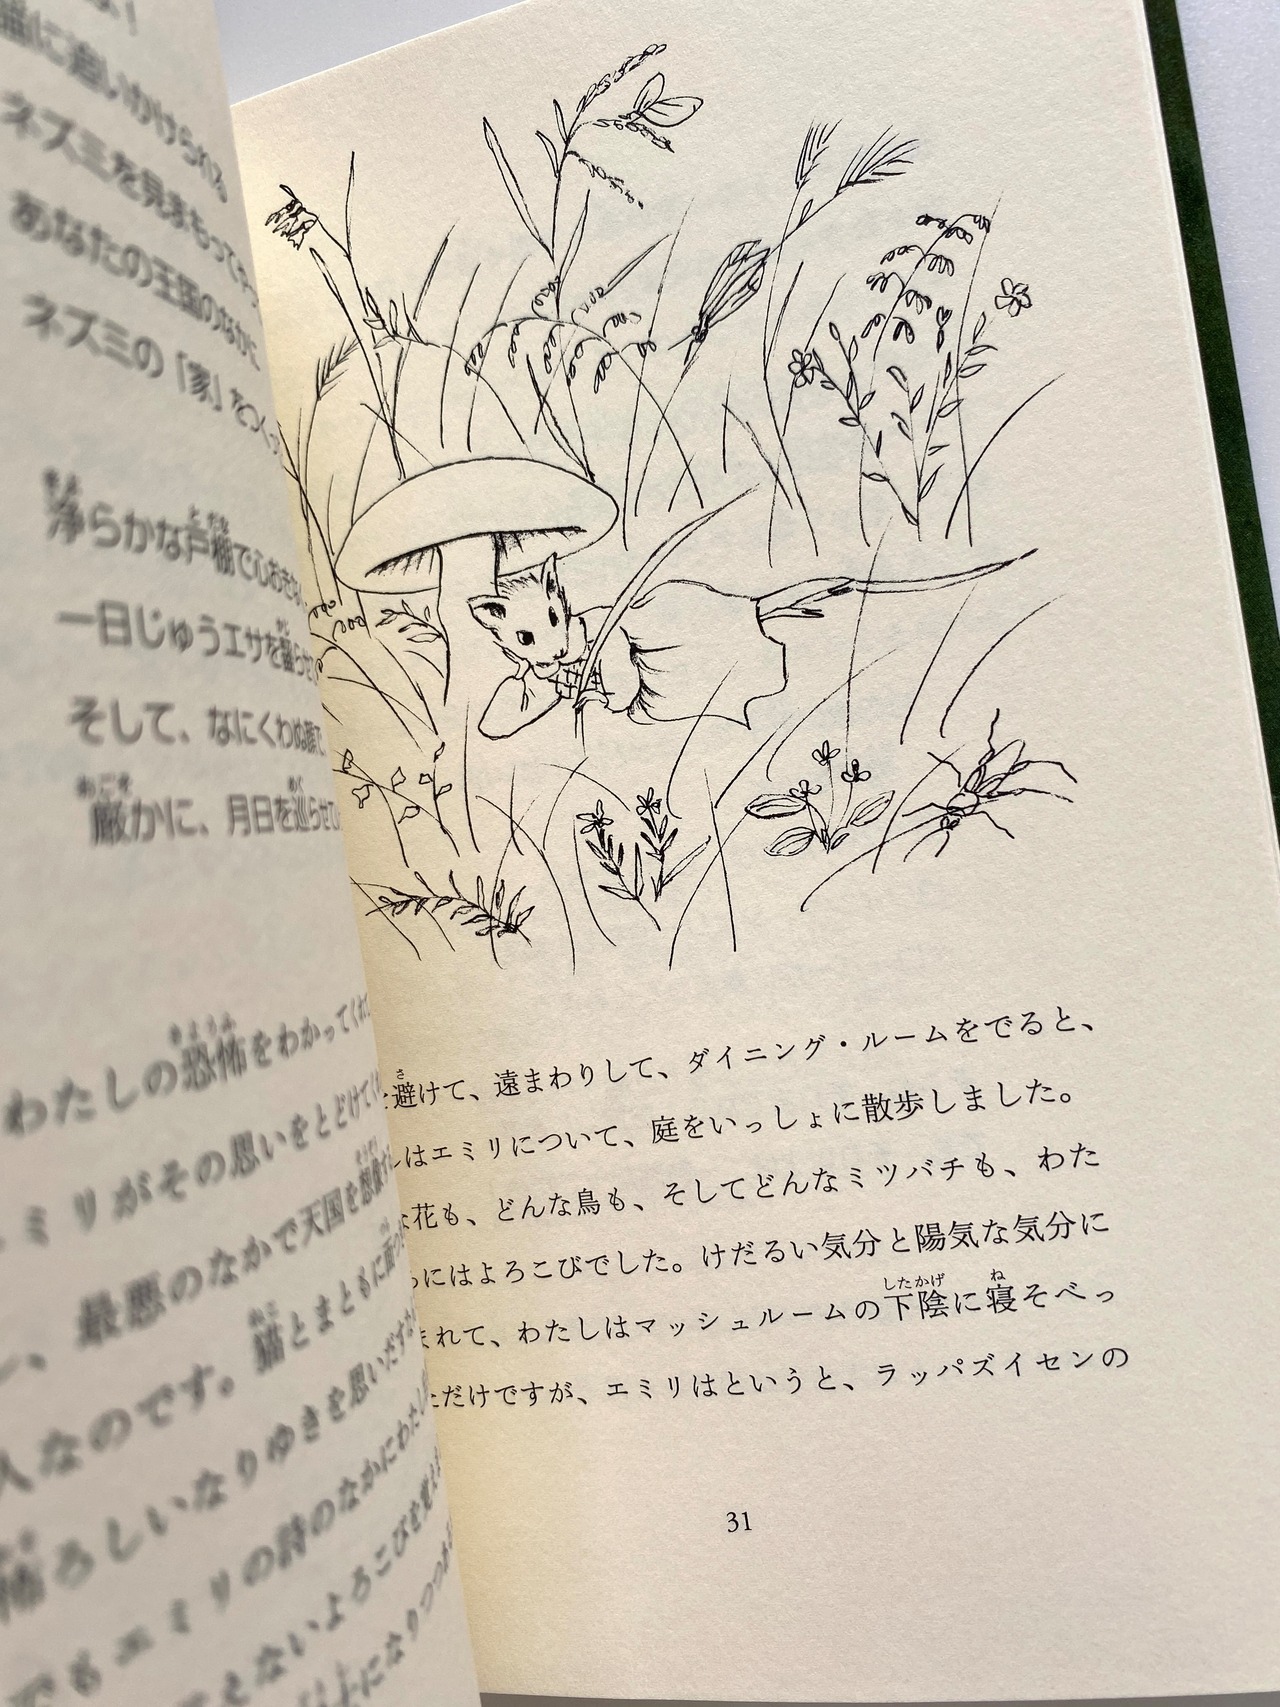 猫に追いかけられる
ネズミを見まもってやっ
あなたの王国のなかに
ネズミの「家」をつくっ
浄らかな戸棚で心おきな
一日じゅうエサを齧らせ
そして、なにくわぬ顔で
厳かに、月日を巡らせて
わたしの恐怖をわかってくれ
ミリがその思いをとどけて
最悪のなかで天国を想像す
人なのです。猫とまともに
怖ろしいなりゆきを思いだす
でもエミリの詩のなかにわたし
えないよろこびを覚え
以上になりつつ
避けて、遠まわりして、ダイニング・ルームをでると、
しはエミリについて、庭をいっしょに散歩しました。
な花も、どんな鳥も、そしてどんなミツバチも、わた
らにはよろこびでした。けだるい気分と陽気な気分に
まれて、わたしはマッシュルームの下陰に寝そべっ
ただけですが、エミリはというと、ラッパズイセンの
31